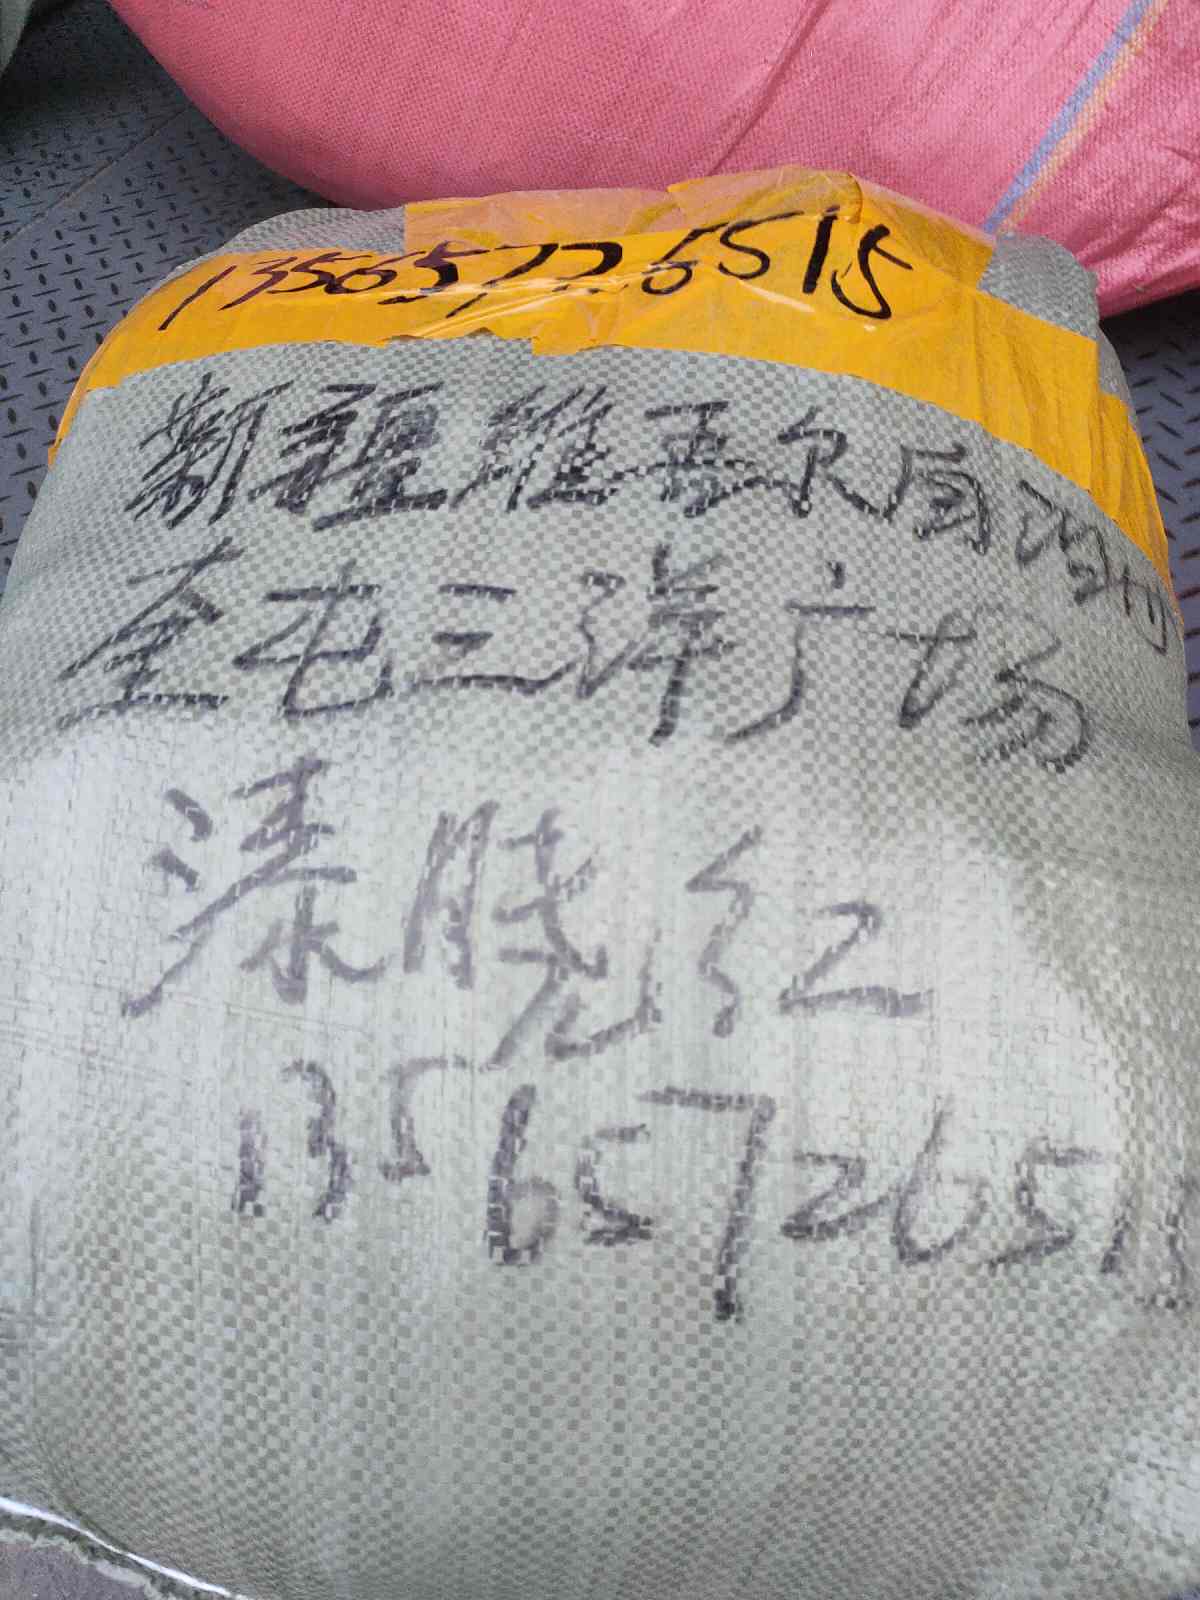 13565726515
新疆维吾尔自治
奎屯三洋广场
漆晓红
1356572651